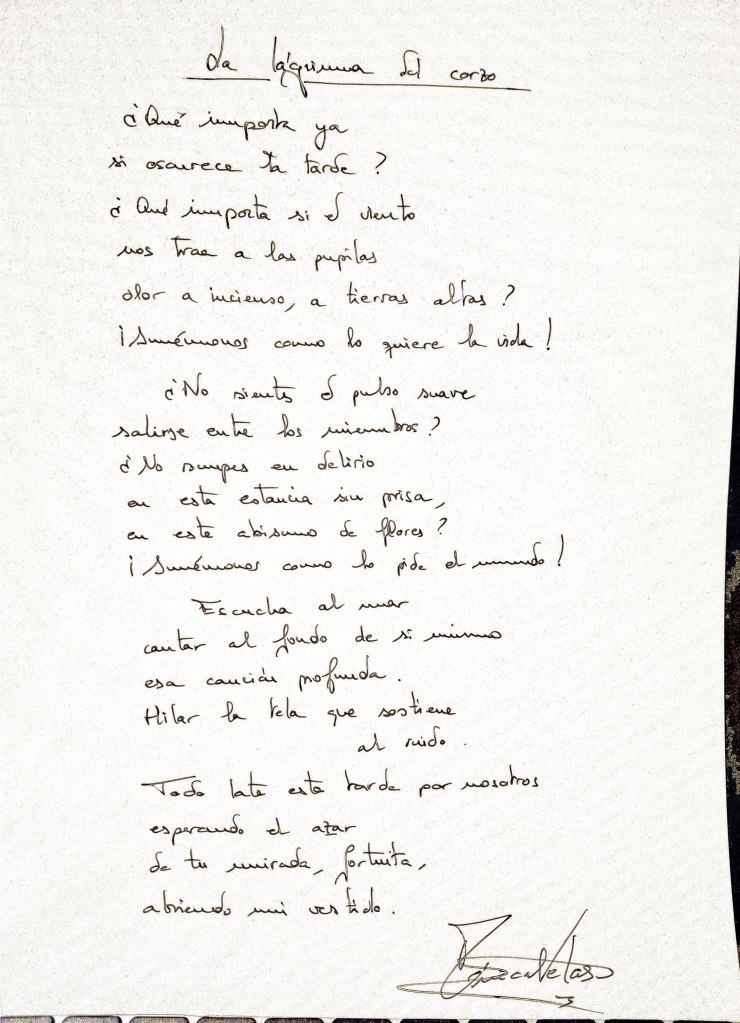 La lágrima del corzo
¿Qué importa ya
si oscurece la tarde?
¿Qué importa si el viento
nos trae a las pupilas
olor a incienso, a tierras altas?
¡Amémonos como lo quiere la vida!
¿No sientes el pulso suave
salirse entre los miembros?
¿No rompes en delirio
en esta estancia sin prisa,
en este abismo de flores?
¡Amémonos como lo pide el mundo!
Escucha al mar
cantar al fondo de sí mismo
esa canción profunda.
Hilar la tela que sostiene
al ruido.
Todo late esta tarde por nosotros
esperando el azar
de tu mirada, fortuita,
abriendo mi vestido.